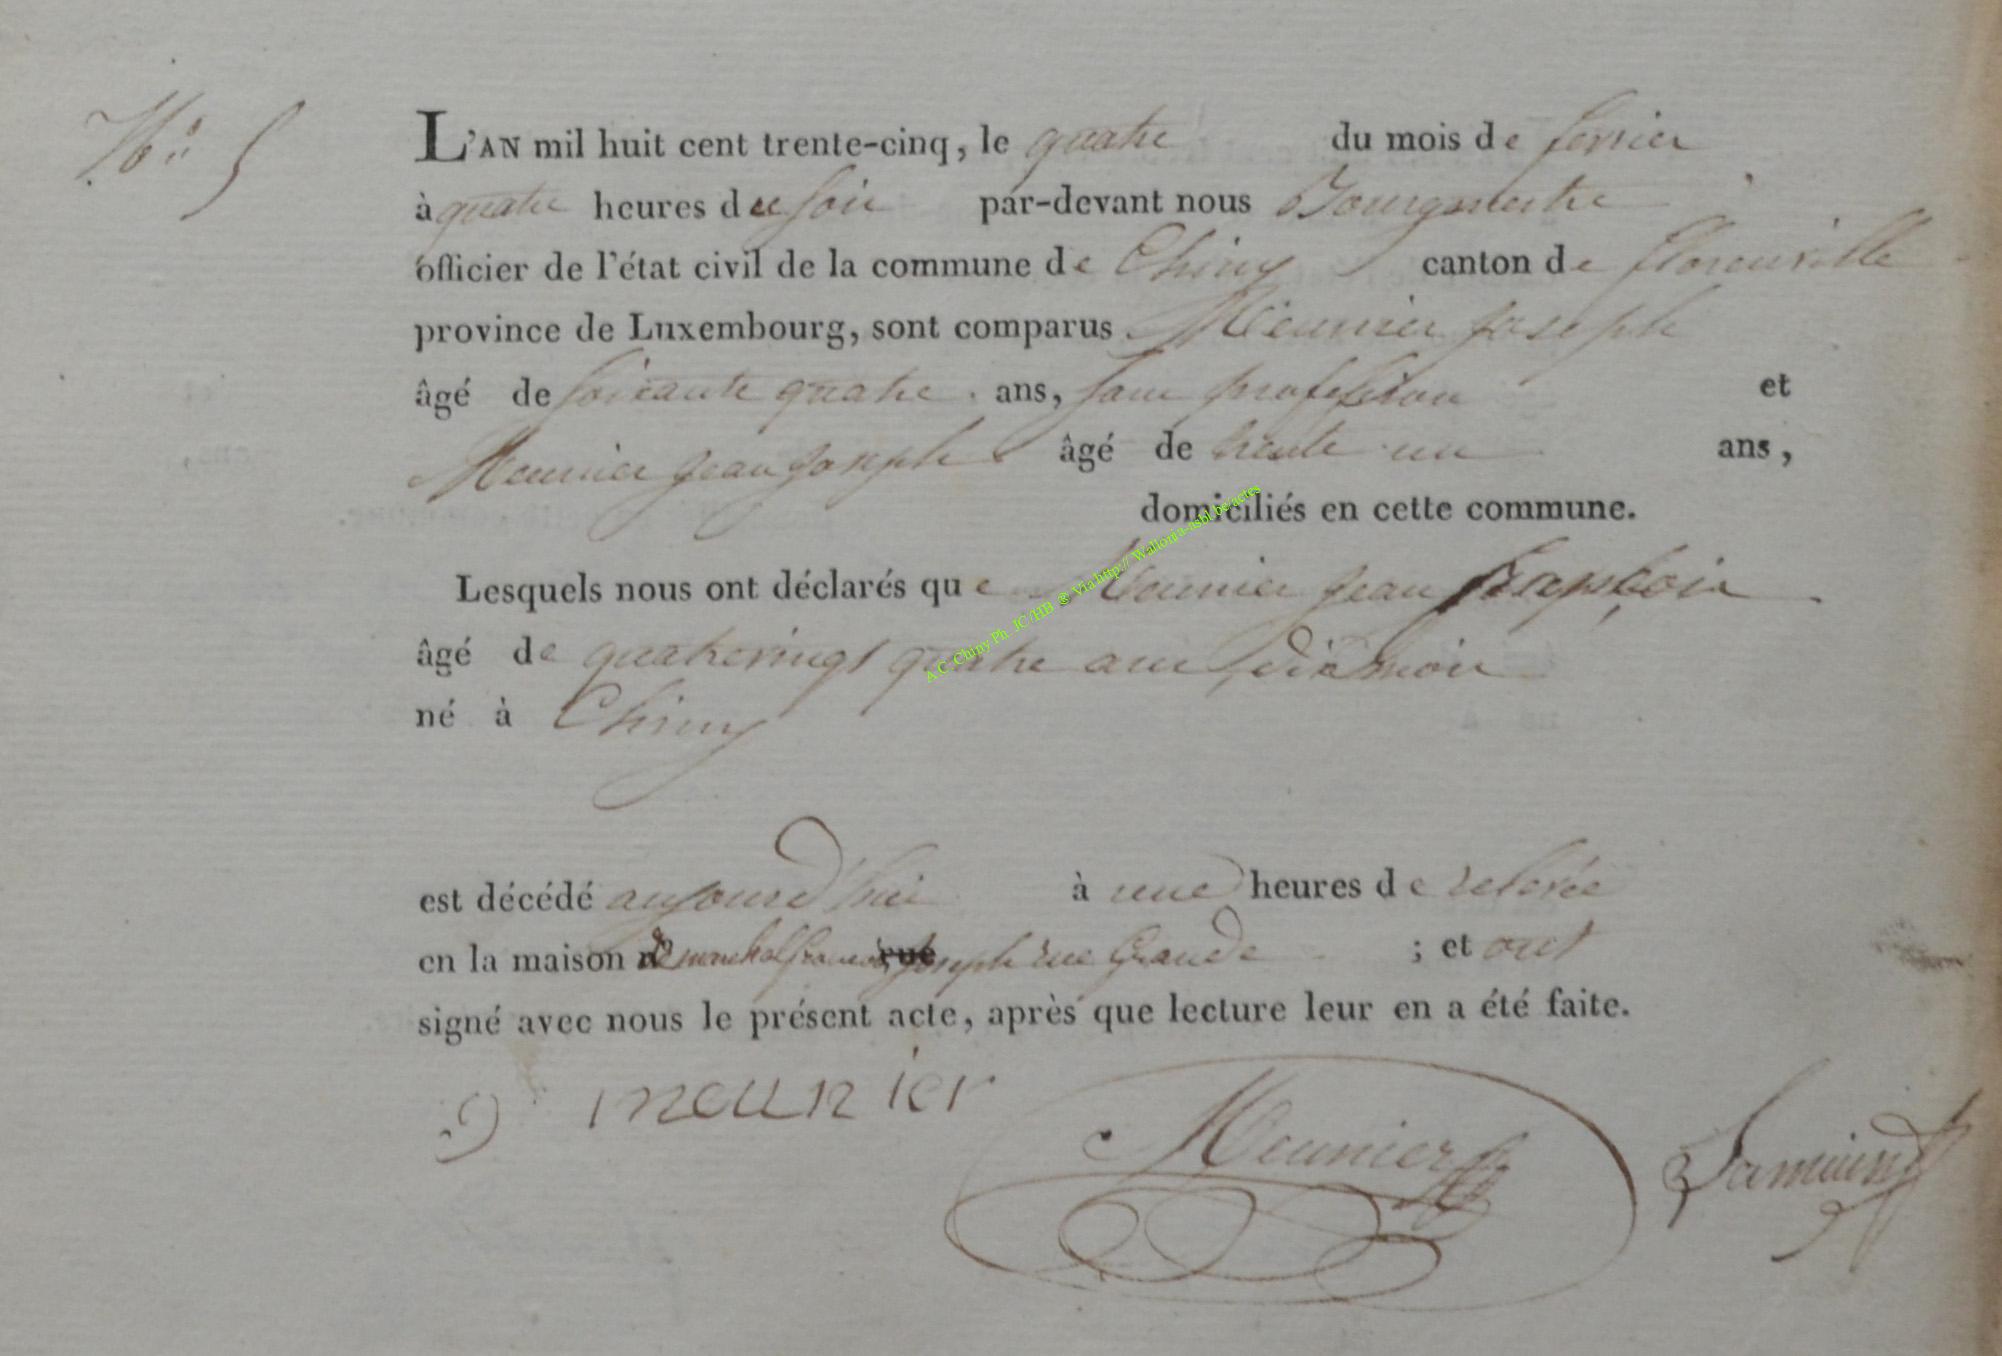 No 5
L'AN mil huit cent trente-cinq, le quatre du mois de fevrier
à quatre heures du soir par-devant nous Bourgmestre
officier de l'état civil de la commune de Chiny canton de florenville
province de Luxembourg, sont comparus Meunier Joseph
âgé de soixante quatre ans, sans profession et
Meunier jean joseph âgé de trente un ans,
domiciliés en cette commune.
Lesquels nous ont déclarés que Meunier jean
âgé de quatrevingt quatre ans dix mois
né à Chiny
est décédé aujourd'hui à une heures de relevée
en la maison de joseph rue Grande ; et ont
signé avec nous le présent acte, après que lecture leur en a été faite.
J meunier
Meunier
A.C. Chiny Ph. JC/HB @ Via http:// Wallonia-asbl.be/actes